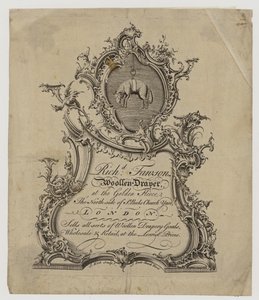 Richd. Fawson,
Woollen-Draper,
at the Golden Fleece
The North side of St. Pauls Church Yard
LONDON.
Sells all sorts of Woollen Drapery Goods,
Wholesale & Retail, at the Lowest Prices.